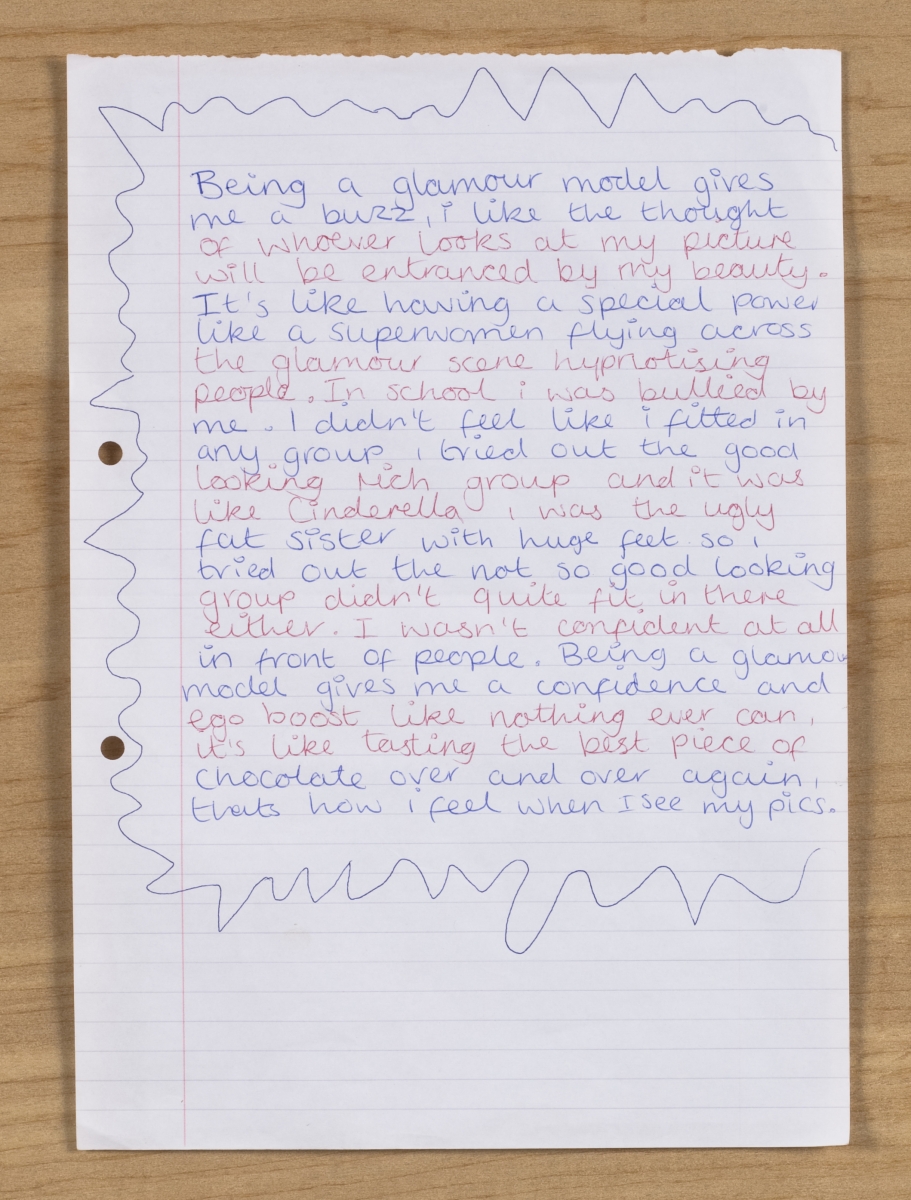 Being a glamour model gives
me a buzz, i like the thought
of whoever looks at my picture
will be entranced by my beauty.
It's like having a special power
like a superwomen flying across
the glamour scene hypnotising
people. In school i was bullied by
me. I didn't feel like i fitted in
any group, i tried out the good
looking rich group and it was
like Cinderella i was the ugly
fat sister with huge feet so i
tried out the not so good looking
group didn't quite fit in there
either. I wasn't confident at all
in front of people. Being a glamou
model gives me a confidence and
ego boost like nothing ever can,
it's like tasting the best piece of
chocolate over and over again,
thats how i feel when I see my pics.